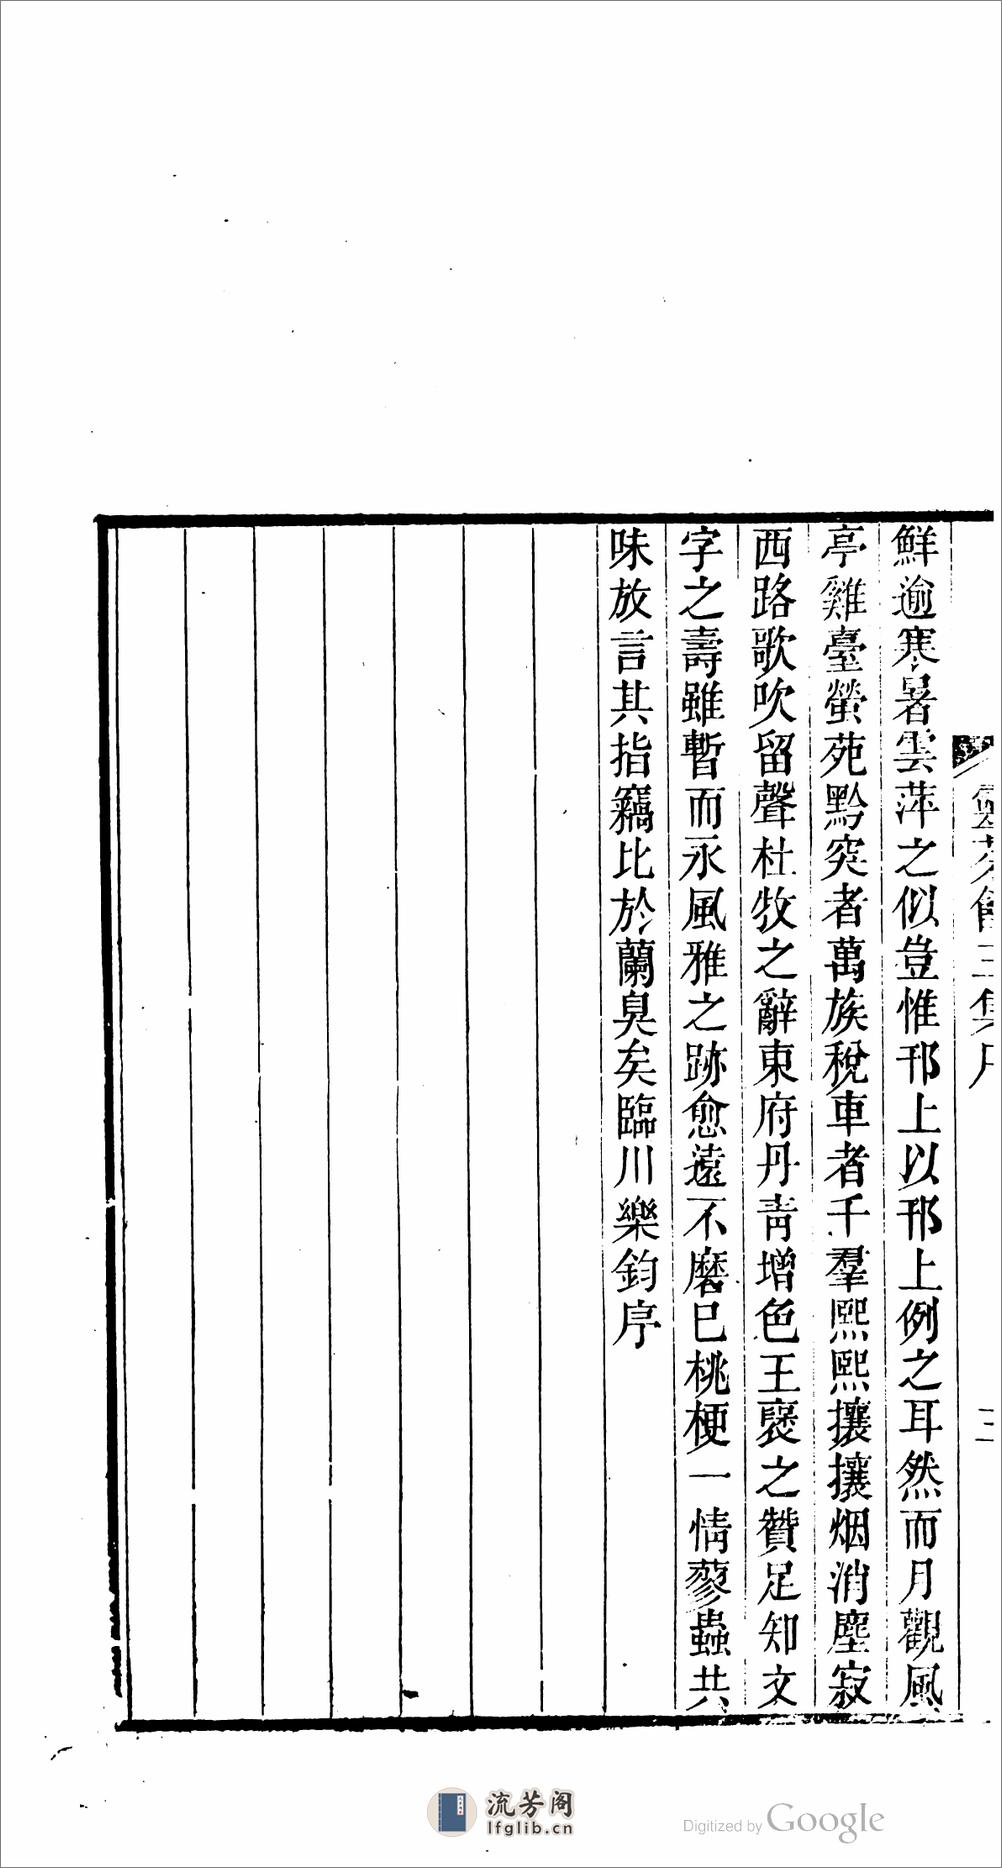 鮮逾寒暑雲萍之似豈惟邗上以邗上例之耳然而月觀風
亭雞臺螢苑黔突者萬族稅車者千羣熙熙攘攘烟消塵寂
西路歌吹留聲杜牧之辭東府丹靑增色王襃之贊足知文
字之壽雖暫而永風雅之跡愈遠不磨巳桃梗一情蓼蟲共
味放言其指竊比於蘭臭矣臨川樂鈞序
三集序
三
流芳阁
lfglib.cn
Digitized by Google